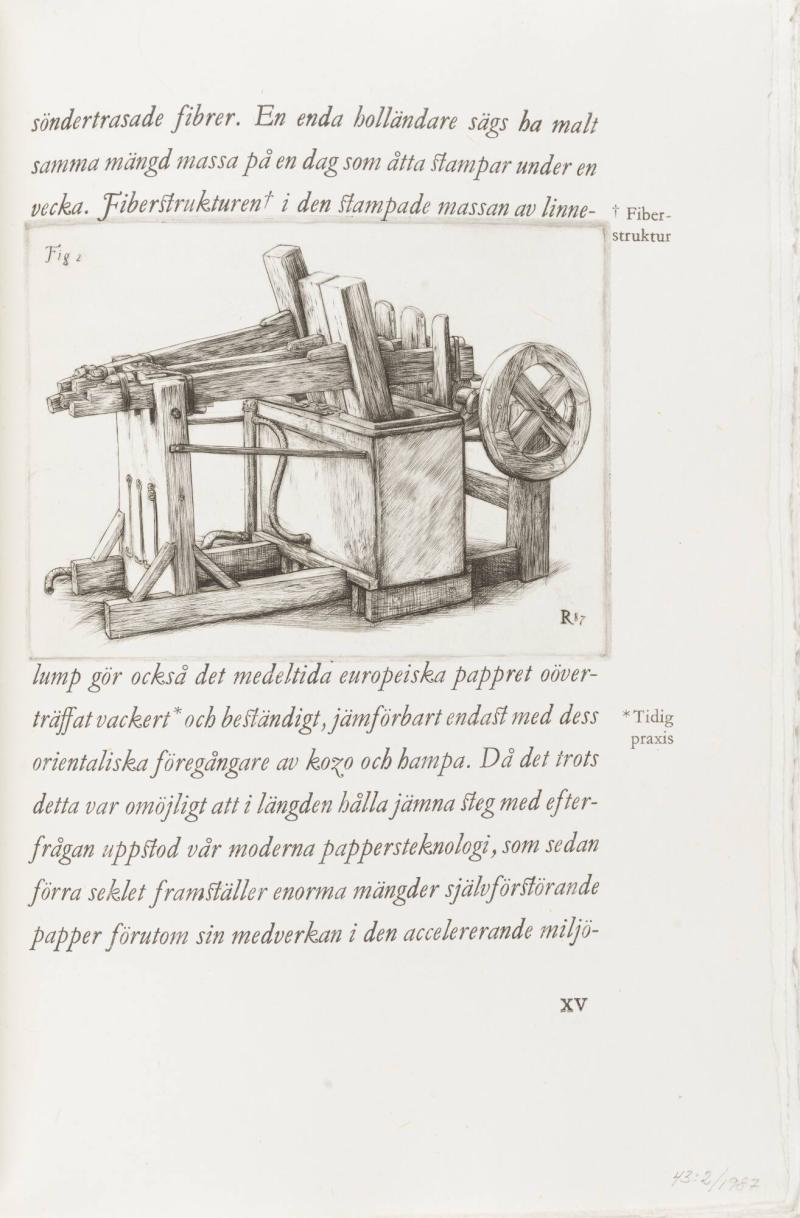 söndertrasade fibrer. En enda holländare sägs ha malt
samma mängd massa på en dag som åtta stampar under en
vecka. Fiberstrukturen† i den stampade massan av linne-
† Fiber-
struktur
Fig 2
R87
lump gör också det medeltida europeiska pappret oöver-
träffat vackert* och beständigt, jämförbart endast med dess
* Tidig
praxis
orientaliska föregångare av kozo och hampa. Då det trots
detta var omöjligt att i längden hålla jämna steg med efter-
frågan uppstod vår moderna pappersteknologi, som sedan
förra seklet framställer enorma mängder självförstörande
papper förutom sin medverkan i den accelererande miljö-
XV
43:2/1987